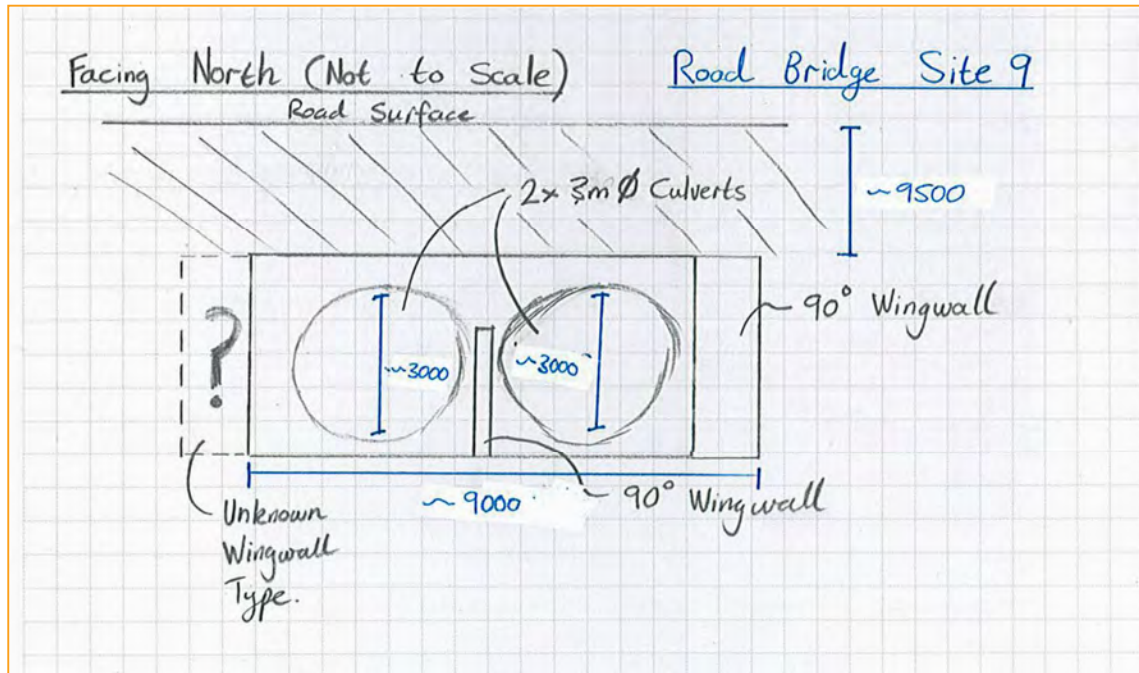 Facing North (Not to Scale)
Road Bridge Site 9
Road Surface
2x 3m Ø Culverts
~9500
90° Wingwall
?
~3000
~3000
~9000
90° Wingwall
Unknown
Wingwall
Type.